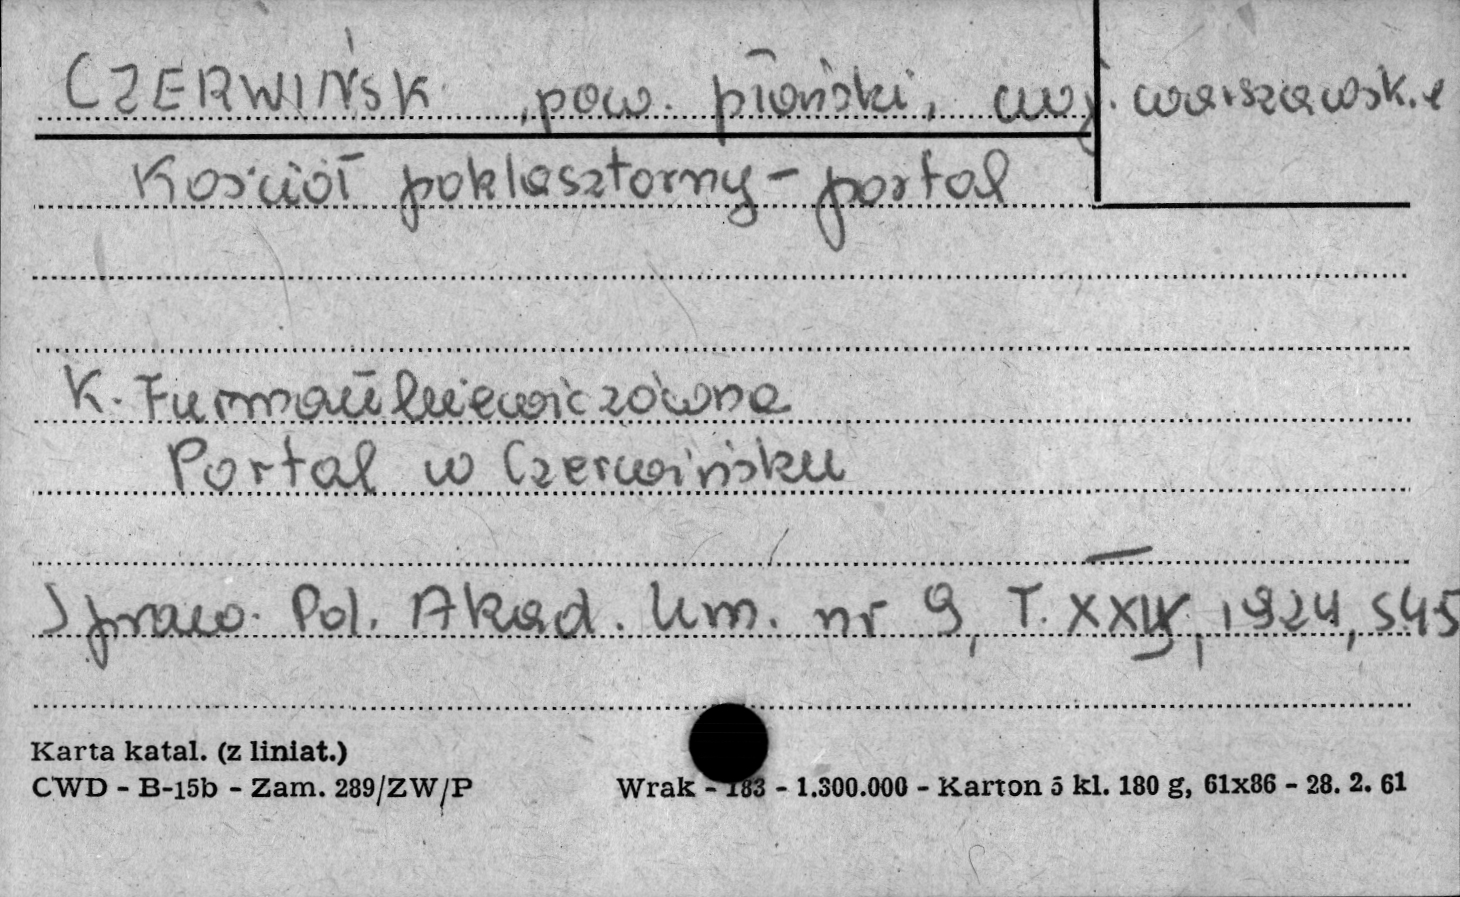 CZERWIŃSK, pow. płoński, woj. warszawskie
Kościół poklasztorny - portal
K. Furmańkiewiczówna
Portal w Czerwińsku
Spraw. Pol. Akad. Um. nr 9, T. XXIX, 1924, s45
Karta katal. (z liniat.)
CWD - B-15b - Zam. 289/ZW/P
Wrak - 183 - 1.300.000 - Karton 5 kl. 180 g, 61x86 - 28. 2. 61